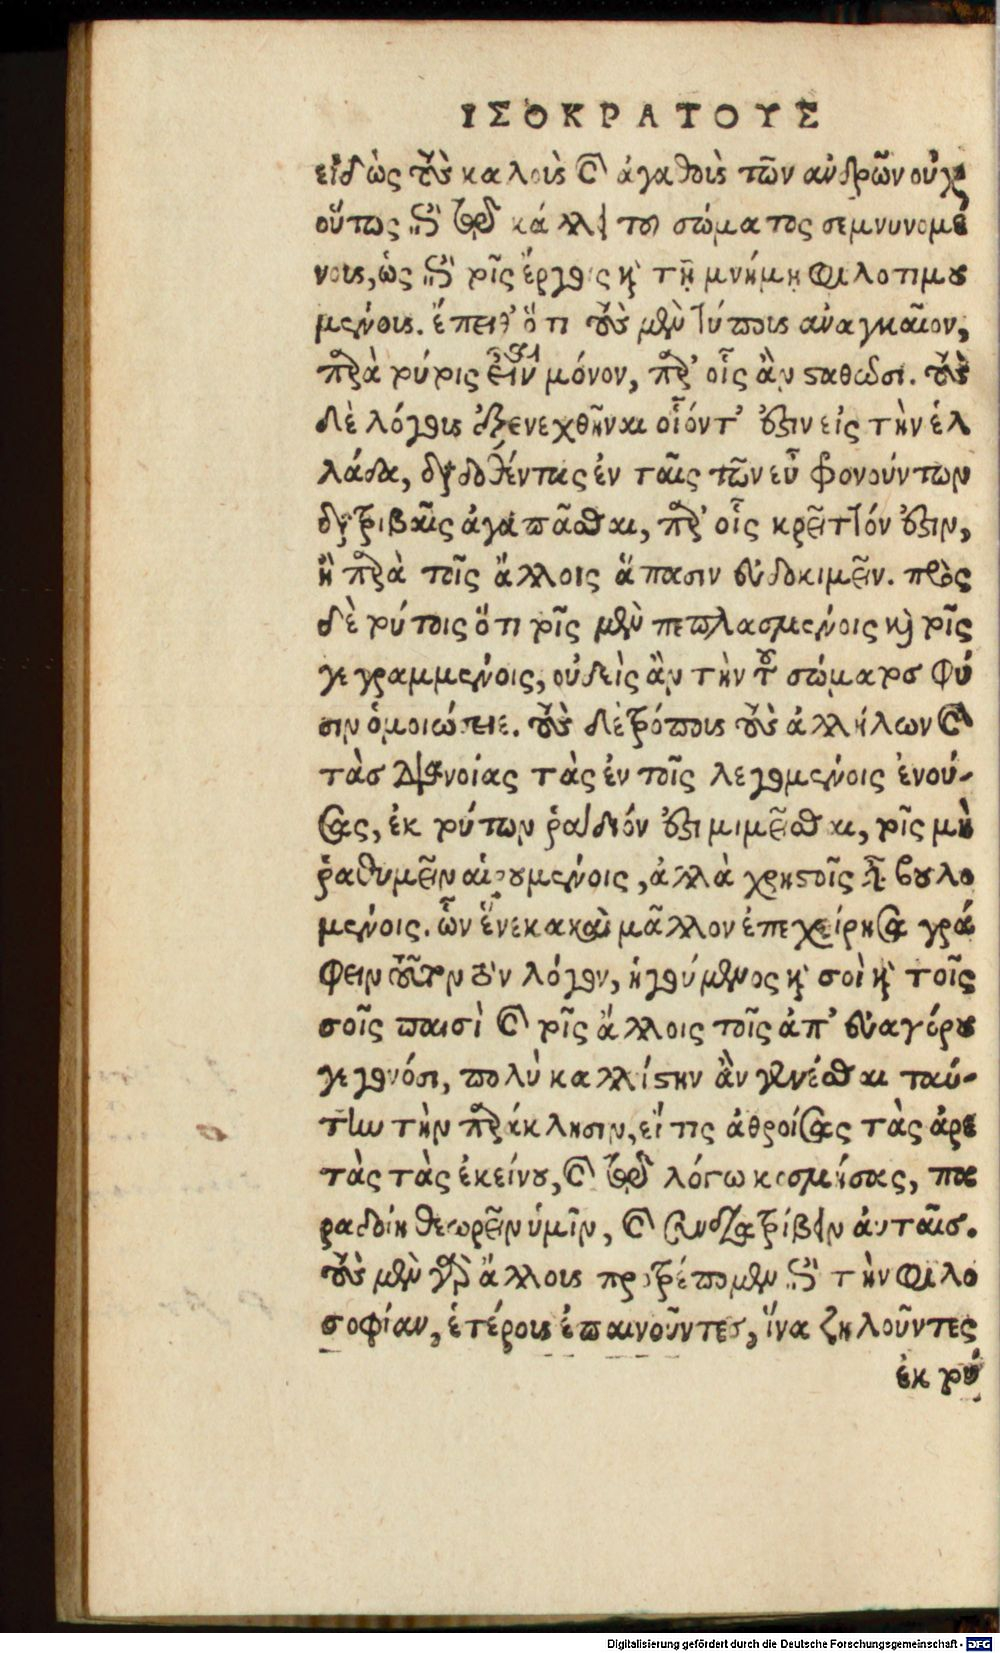 ΙΣΟΚΡΑΤΟΥΣ
εἰδὼς τοὺς καλοὺς καὶ ἀγαθοὺς τῶν ἀνδρῶν οὐχ
οὕτως ἐπὶ τῷ κάλλει τοῦ σώματος σεμνυνομέ
νους, ὡς ἐπὶ τοῖς ἔργοις καὶ τῇ μνήμῃ φιλοτιμου
μένους. ἔπειθ' ὅτι τοὺς μὲν τύπους ἀναγκαῖον,
παρὰ τούτοις εἶναι μόνον, παρ' οἷς ἂν σταθῶσι. τοὺς
δὲ λόγους ἐξενεχθῆναι οἷόντ' ἐστὶν εἰς τὴν ἑλ
λάδα, διαδοθέντας ἐν ταῖς τῶν εὖ φρονούντων
διατριβαῖς ἀγαπᾶσθαι, παρ' οἷς κρεῖττόν ἐστιν,
ἢ παρὰ τοῖς ἄλλοις ἅπασιν εὐδοκιμεῖν. πρὸς
δὲ τούτοις ὅτι τοῖς μὲν πεπλασμένοις καὶ τοῖς
γεγραμμένοις, οὐδεὶς ἂν τὴν τοῦ σώματος φύ
σιν ὁμοιώσειε. τοὺς δὲ τρόπους τοὺς ἀλλήλων καὶ
τὰς διανοίας τὰς ἐν τοῖς λεγομένοις ἐνού-
σας, ἐκ τούτων ῥᾴδιόν ἐστι μιμεῖσθαι, τοῖς μὴ
ῥαθυμεῖν αἱρουμένοις, ἀλλὰ χρηστοῖς εἶναι βουλο
μένοις. ὧν ἕνεκα καὶ μᾶλλον ἐπεχείρησα γρά
φειν τοῦτον τὸν λόγον, ἡγούμενος καὶ σοὶ καὶ τοῖς
σοῖς παισὶ καὶ τοῖς ἄλλοις τοῖς ἀπ' εὐαγόρου
γεγονόσι, πολὺ καλλίστην ἂν γενέσθαι ταύ-
την τὴν παράκλησιν, εἴ τις ἀθροίσας τὰς ἀρε
τὰς τὰς ἐκείνου, καὶ τῷ λόγω κοσμήσας, πα
ραδοίη θεωρεῖν ὑμῖν, καὶ συνδιατρίβειν αὐταῖς.
τοὺς μὲν γὰρ ἄλλους προτρέπομεν ἐπὶ τὴν φιλο
σοφίαν, ἑτέρους ἐπαινοῦντες, ἵνα ζηλοῦντες
ἐκ τού
Digitalisierung gefördert durch die Deutsche Forschungsgemeinschaft - DFG